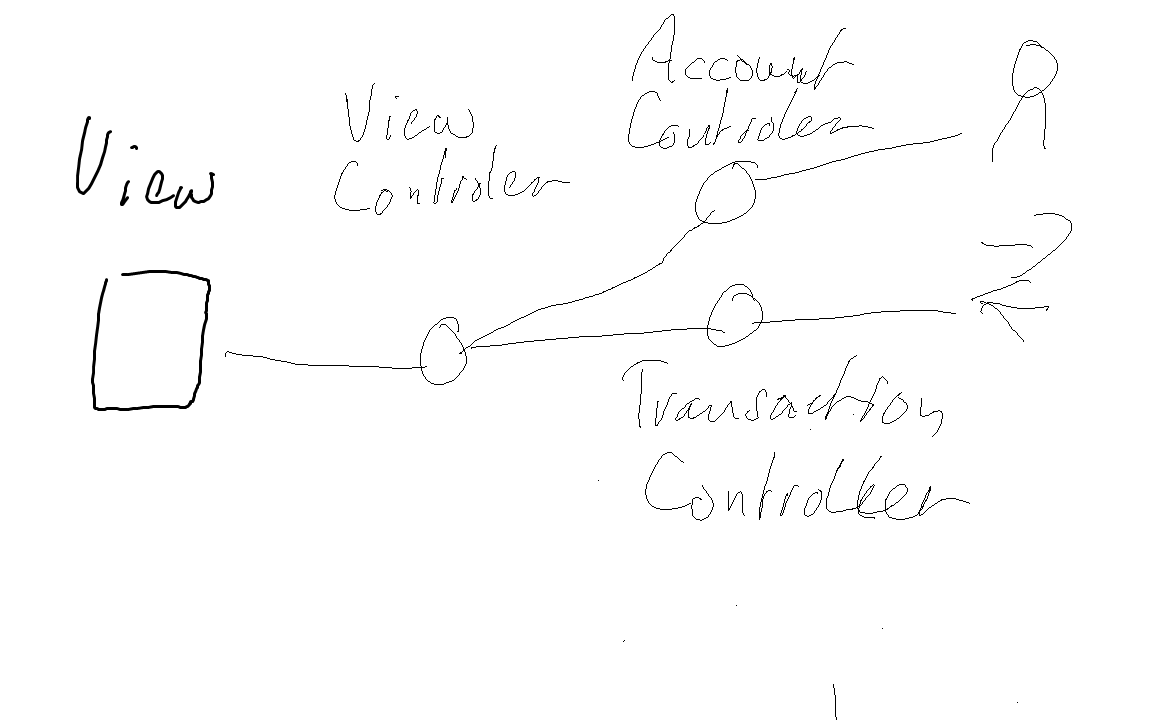 View
View
Controler
Account
Controler
Transaction
Controller